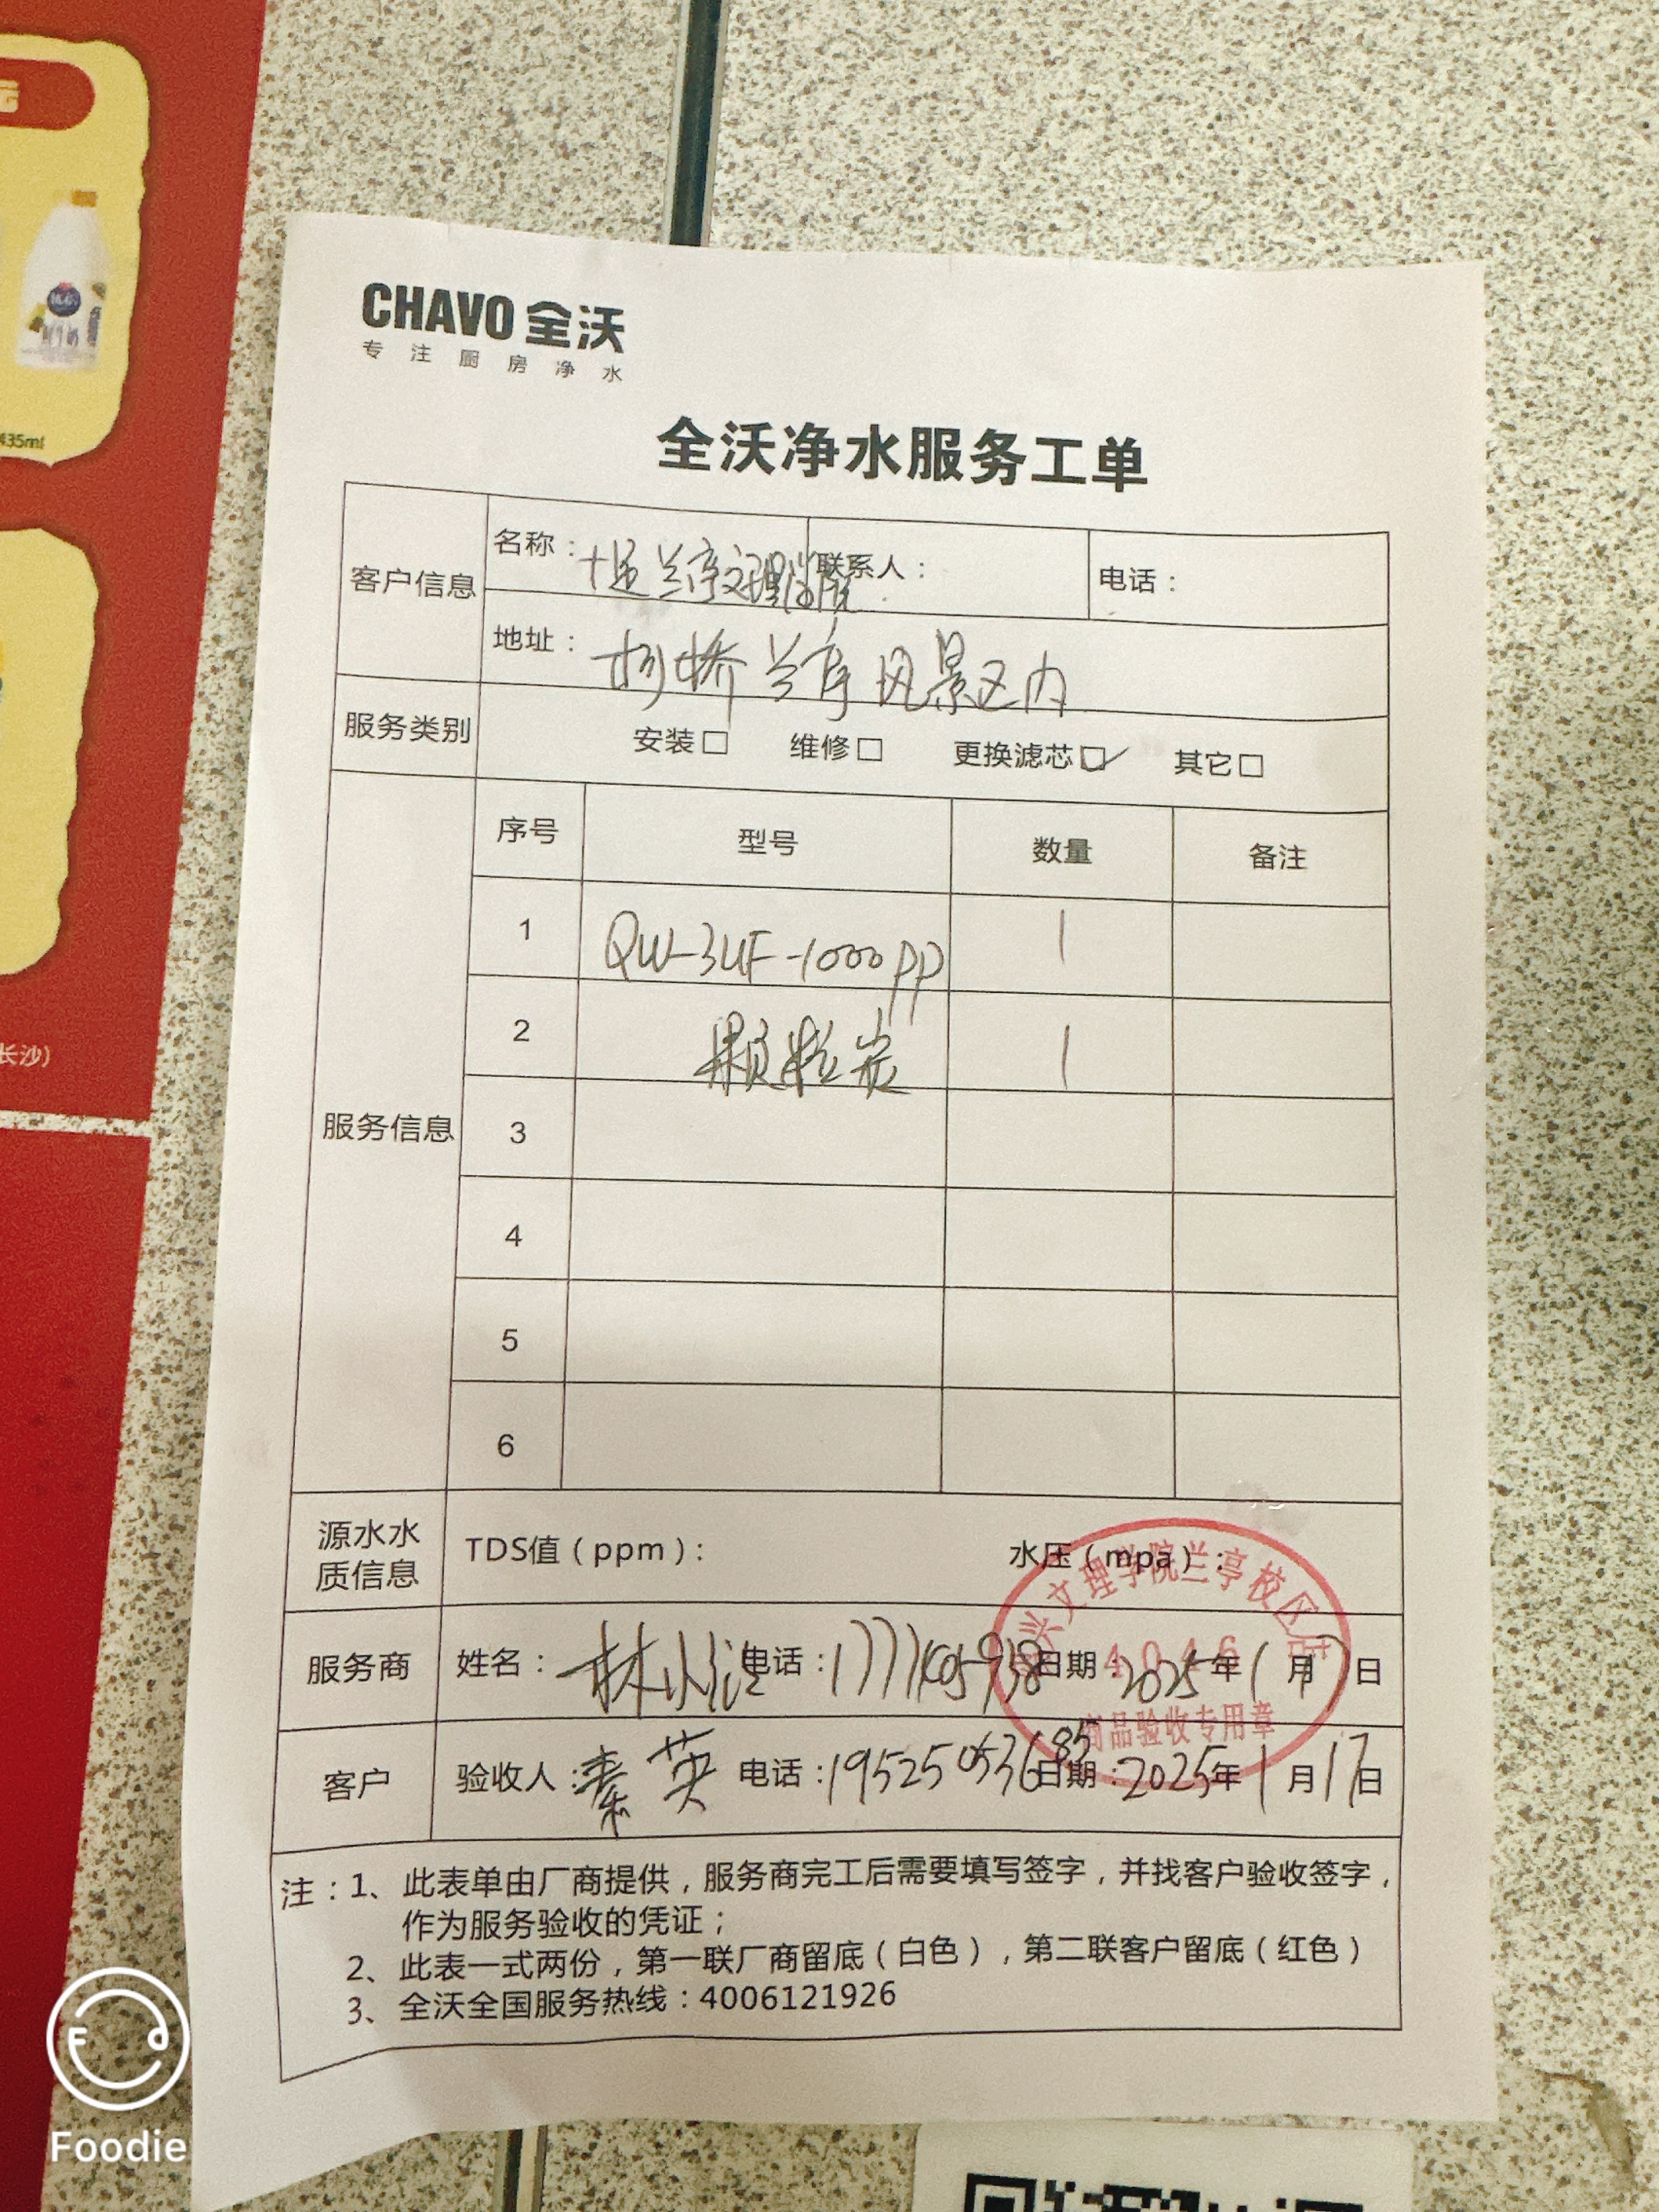 435ml
长沙)
CHAVO 全沃
专注厨房净水
全沃净水服务工单
客户信息
名称：十足兰亭文理学院
联系人：
电话：
地址：柯桥兰亭风景区内
服务类别
安装□ 维修□ 更换滤芯☑ 其它□
服务信息
序号 型号 数量 备注
1 QW-3UF-1000PP 1
2 颗粒炭 1
3
4
5
6
源水水质信息
TDS值（ppm）： 水压（mpa）：
服务商 姓名：林 电话： 日期：2025年1月17日
客户 验收人：秦英 电话：19525053685 日期：2025年1月17日
兴文理学院兰亭校区店
4046
商品验收专用章
注：1、此表单由厂商提供，服务商完工后需要填写签字，并找客户验收签字，
作为服务验收的凭证；
2、此表一式两份，第一联厂商留底（白色），第二联客户留底（红色）
3、全沃全国服务热线：4006121926
Foodie